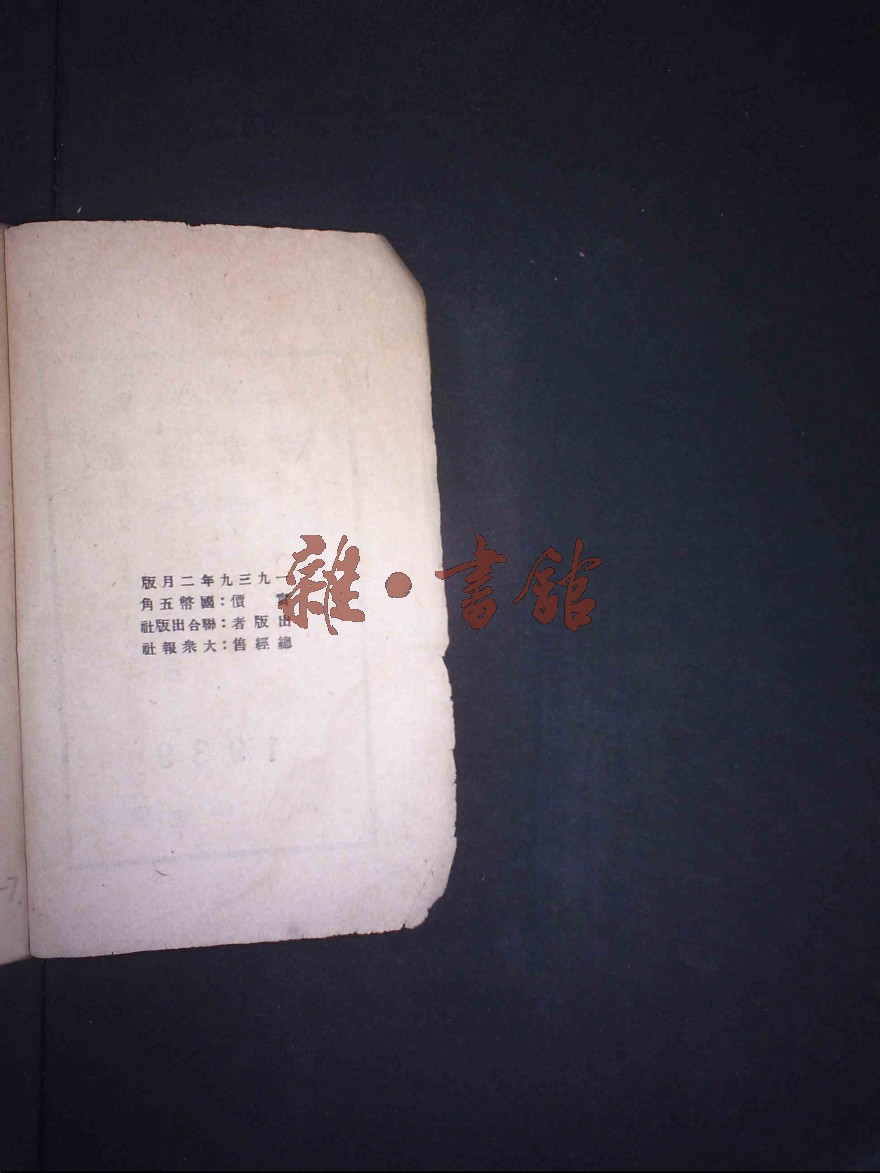 一九三九年二月版
實價：國幣五角
出版者：聯合出版社
總經售：大衆報社
雜·書館
1939